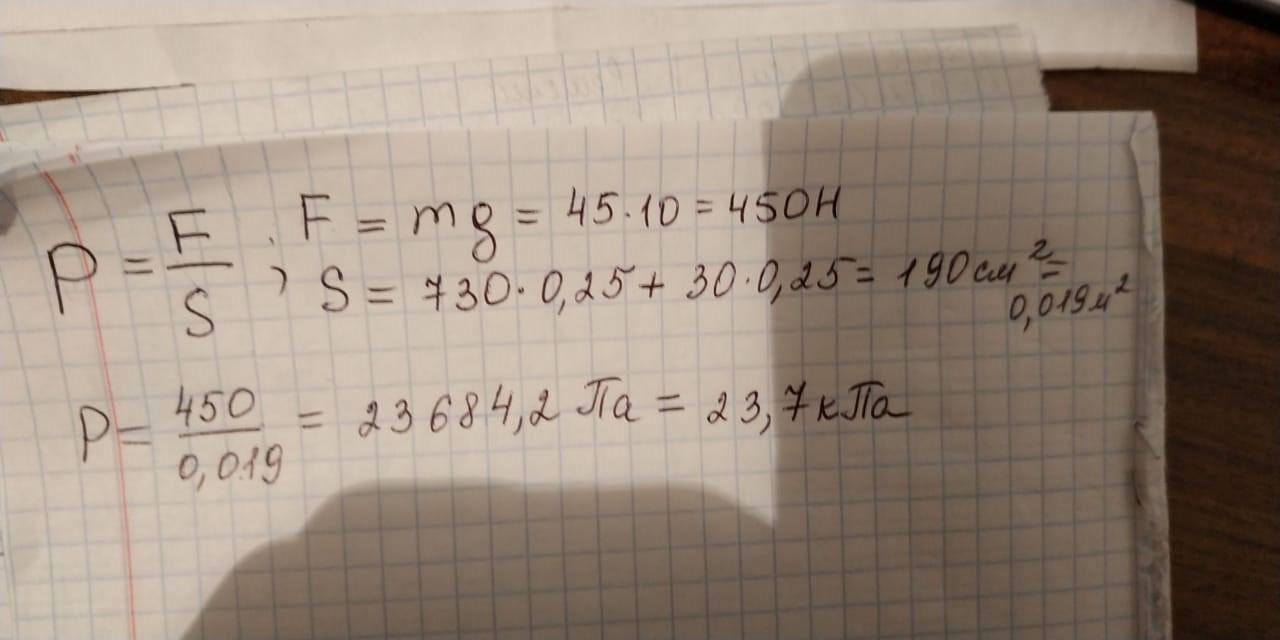 P = F/S , F = mg = 45·10 = 450Н
S = 730·0,25 + 30·0,25 = 190 см² = 0,019 м²
P = 450/0,019 = 23684,2 Па = 23,7 кПа